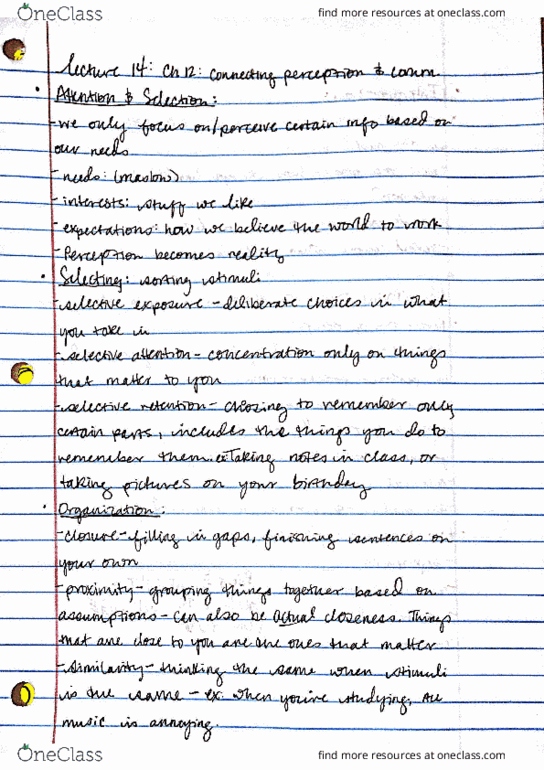 OneClass
find more resources at oneclass.com
lecture 14: Ch 12: Connecting perception & comm.
• Attention & Selection:
-we only focus on/perceive certain info based on
our needs
-needs: (maslow)
-interests: stuff we like
-expectations: how we believe the world to work
-Perception becomes reality
• Selecting: sorting stimuli
-selective exposure - deliberate choices in what
you take in
-selective attention - concentration only on things
that matter to you
-selective retention - choosing to remember only
certain parts, includes the things you do to
remember them. Taking notes in class, or
taking pictures on your birthday
• Organization:
-closure - filling in gaps, finishing sentences on
your own
-proximity - grouping things together based on
assumptions - can also be actual closeness. Things
that are close to you are the ones that matter
-similarity - thinking the same when stimuli
is the same - ex: when you're studying, all
music is annoying.
OneClass
find more resources at oneclass.com